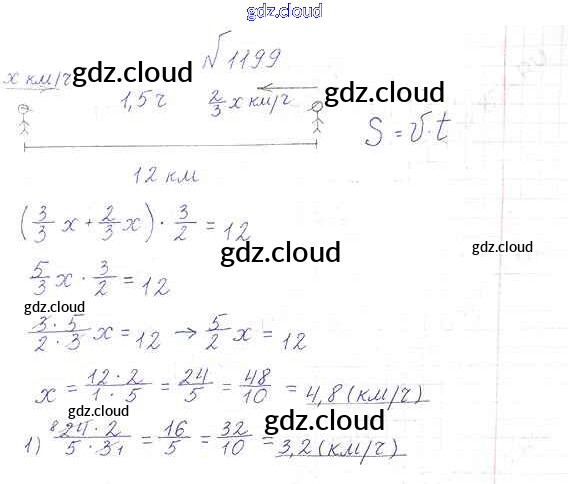 gdz.cloud
№1199
x км/ч gdz.cloud 1,5 ч 2/3 x км/ч gdz.cloud
S = v·t
12 км
(3/3 x + 2/3 x) · 3/2 = 12
gdz.cloud
gdz.cloud
5/3 x · 3/2 = 12
gdz.cloud
gdz.cloud
3·5/2·3 x = 12 → 5/2 x = 12
gdz.cloud
x = 12·2/1·5 = 24/5 = 48/10 = 4,8 (км/ч)
gdz.cloud
gdz.cloud
1) 8 24·2/5·3 1 = 16/5 = 32/10 = 3,2 (км/ч)
gdz.cloud